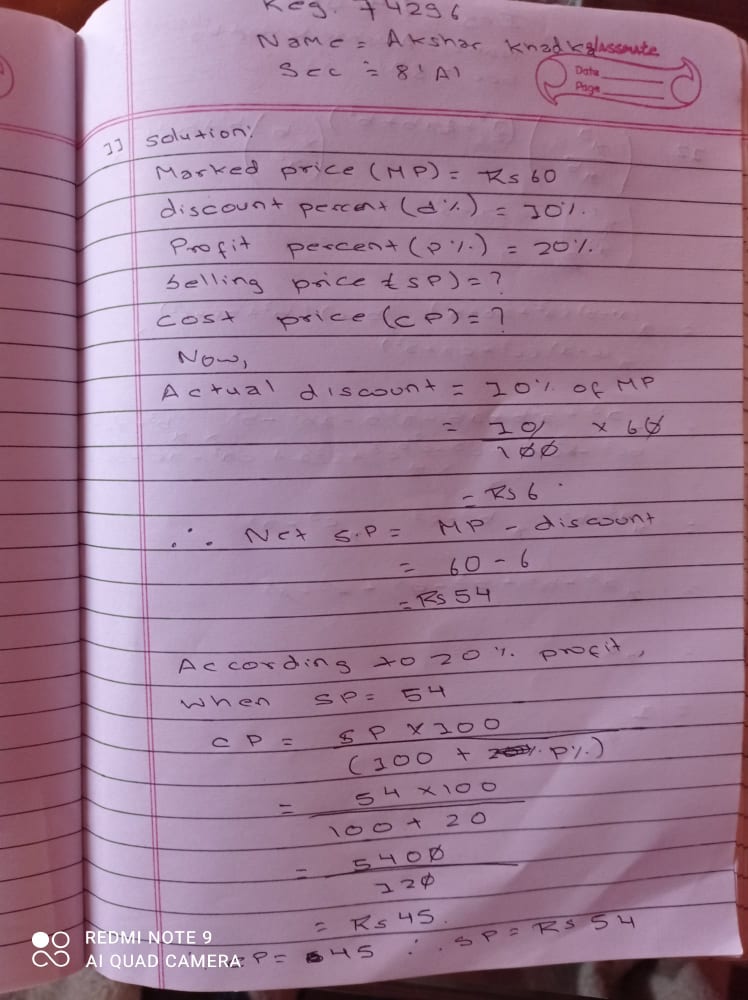 Reg. 74296
Name = Akshar khadka
classmate
Sec = 8'A1
Date
Page
1] solution:
Marked price (MP) = Rs 60
discount percent (d%) = 10%.
Profit percent (p%.) = 20%.
Selling price (SP) = ?
Cost price (CP) = ?
Now,
Actual discount = 10% of MP
= 10/100 × 60
= Rs 6
∴ Net S.P = MP - discount
= 60 - 6
= Rs 54
According to 20% profit,
when SP = 54
CP = SP × 100
(100 + P%.)
= 54 × 100
100 + 20
= 5400
120
= Rs 45.
CP = 45 ∴ SP = Rs 54
REDMI NOTE 9
AI QUAD CAMERA